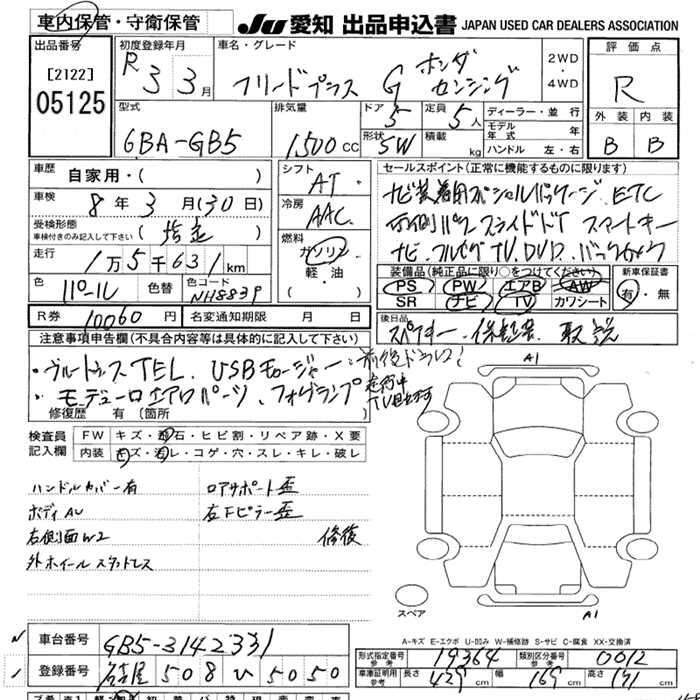 車内保管・守衛保管
JU 愛知 出品申込書 JAPAN USED CAR DEALERS ASSOCIATION
出品番号
[2122]
05125
初度登録年月
R 3 3月
車名・グレード
フリードプラス G ホンダ センシング
2WD
・
4WD
評価点
R
外装 内装
B B
型式
6BA-GB5
排気量
1500cc
ドア 5
定員 5人
形状 5W
積載 kg
ディーラー・並行
モデル年式 年
ハンドル 左・右
車歴 自家用・( )
車検 8年 3月(30日)
受検形態 (指定)
車検付きのみ記入して下さい
走行 1万5千631km
色 パール 色替 色コード NH883P
R券 10060円 名変通知期限 月 日
シフト AT
冷房 AAC
燃料
ガソリン
軽・油
( )
セールスポイント(正常に機能するものに限ります)
ナビ装着用スペシャルパッケージ、ETC
両側パワースライドドア スマートキー
ナビ、フルセグTV、DVD、バックカメラ
装備品(純正品に限り○をつけてください)
PS PW エアB AW
SR ナビ TV カワシート
新車保証書
有・無
後日品
スペアキー、保証書、取説
注意事項申告欄(不具合内容等は具体的に記入して下さい)
・ブルートゥースTEL、USBチャージャー、前後ドラレコ
・モデューロエアロパーツ、フォグランプ 走行中TV視聴可
修復歴 有(箇所 )
検査員記入欄
FW キズ・飛石・ヒビ割・リペア跡・X要
内装 キズ・汚レ・コゲ・穴・スレ・キレ・破レ
ハンドルカバー有 ロアサポート歪
ボディAU 右Fピラー歪
右側面W2 修復
外ホイールスタッドレス
A1
A1
スペア
A-キズ E-エクボ U-凹み W-補修跡 S-サビ C-腐食 XX-交換済
車台番号 GB5-3142331
登録番号 名古屋 508 ひ 5050
形式指定番号 参考 19364 類別区分番号 参考 0012
車庫証明用 参考 長さ 429cm 幅 169cm 高さ 171cm